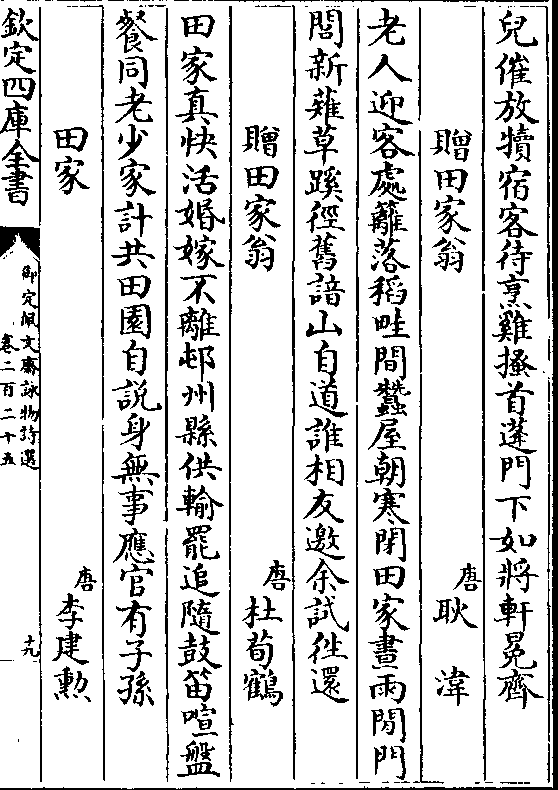 兒催放犢宿客待烹雞搔首蓬門下如將軒冕齊
贈田家翁　唐　耿湋
老人迎客處籬落稻畦間蠶屋朝寒閉田家晝雨閒門
閭新薙草蹊徑舊諳山自道誰相友邀余試往還
贈田家翁　唐　杜荀鶴
田家真快活婚嫁不離邨州縣供輸罷追隨鼓笛喧盤
餐同老少家計共田園自說身無事應官有子孫
田家　唐　李建勳
欽定四庫全書
御定佩文齋詠物詩選
卷二百二十五
十九